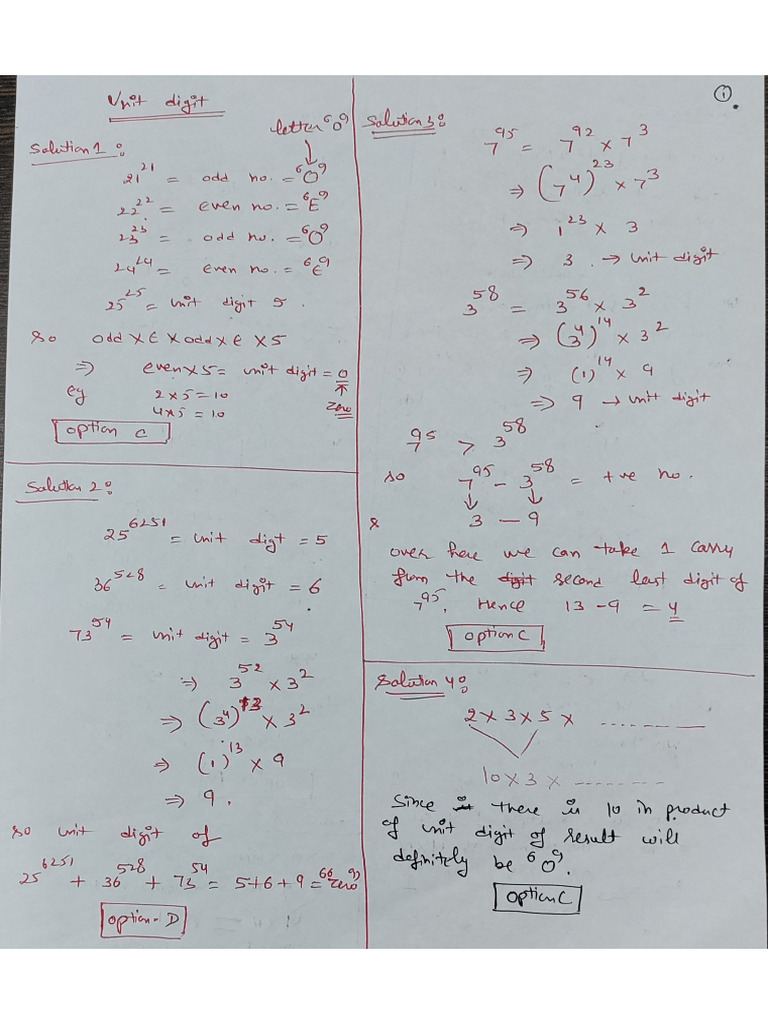 Unit digit
Solution 1 :
letter "O"
↓
21^21 = odd no. = "O"
22^22 = even no. = "E"
23^23 = odd no. = "O"
24^24 = even no. = "E"
25^25 = unit digit 5.
so odd × E × odd × E × 5
⇒ even × 5 = unit digit = 0
↑
zero
eg 2 × 5 = 10
4 × 5 = 10
option C
Solution 2 :
25^6251 = unit digt = 5
36^528 = unit digit = 6
73^54 = unit digit = 3^54
⇒ 3^52 × 3^2
⇒ (3^4)^13 × 3^2
⇒ (1)^13 × 9
⇒ 9.
so unit digit of
25^6251 + 36^528 + 73^54 = 5+6+9 = "zero"
option - D
①.
Solution 3 :
7^95 = 7^92 × 7^3
⇒ (7^4)^23 × 7^3
⇒ 1^23 × 3
⇒ 3. → unit digit
3^58 = 3^56 × 3^2
⇒ (3^4)^14 × 3^2
⇒ (1)^14 × 9
⇒ 9 → unit digit
7^95 > 3^58
so 7^95 - 3^58 = +ve no.
↓ ↓
& 3 - 9
over here we can take 1 carry
from the digit second last digit of
7^95. Hence 13 - 9 = 4
option C
Solution 4 :
2 × 3 × 5 × ..........
10 × 3 × ........
Since is there is 10 in product
of unit digit of result will
definitely be "O".
option C